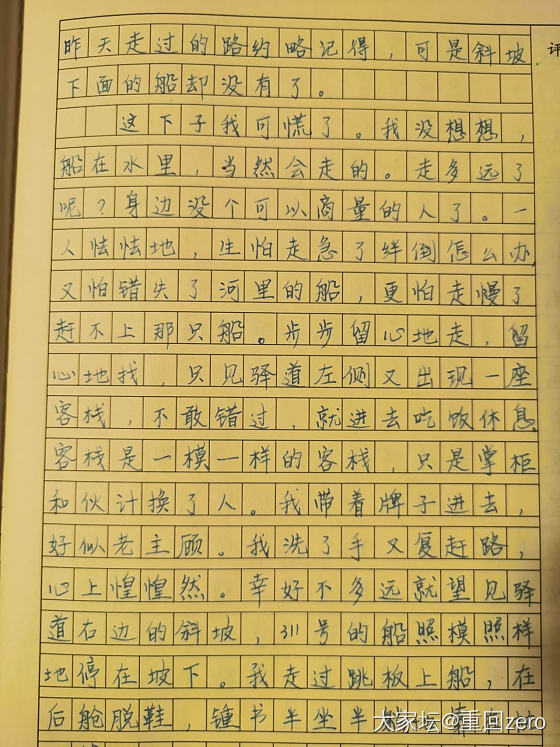 昨天走过的路约略记得，可是斜坡
评
下面的船却没有了。
这下子我可慌了。我没想想，
船在水里，当然会走的。走多远了
呢？身边没个可以商量的人了。一
人怯怯地，生怕走急了绊倒怎么办，
又怕错失了河里的船，更怕走慢了
赶不上那只船。步步留心地走，留
心地找，只见驿道左侧又出现一座
客栈，不敢错过，就进去吃饭休息。
客栈是一模一样的客栈，只是掌柜
和伙计换了人。我带着牌子进去，
好似老主顾。我洗了手又复赶路，
心上惶惶然。幸好不多远就望见驿
道右边的斜坡，311号的船照模照样
地停在坡下。我走过跳板上船，在
后舱脱鞋，锺书半坐半
大家坛@重回zero